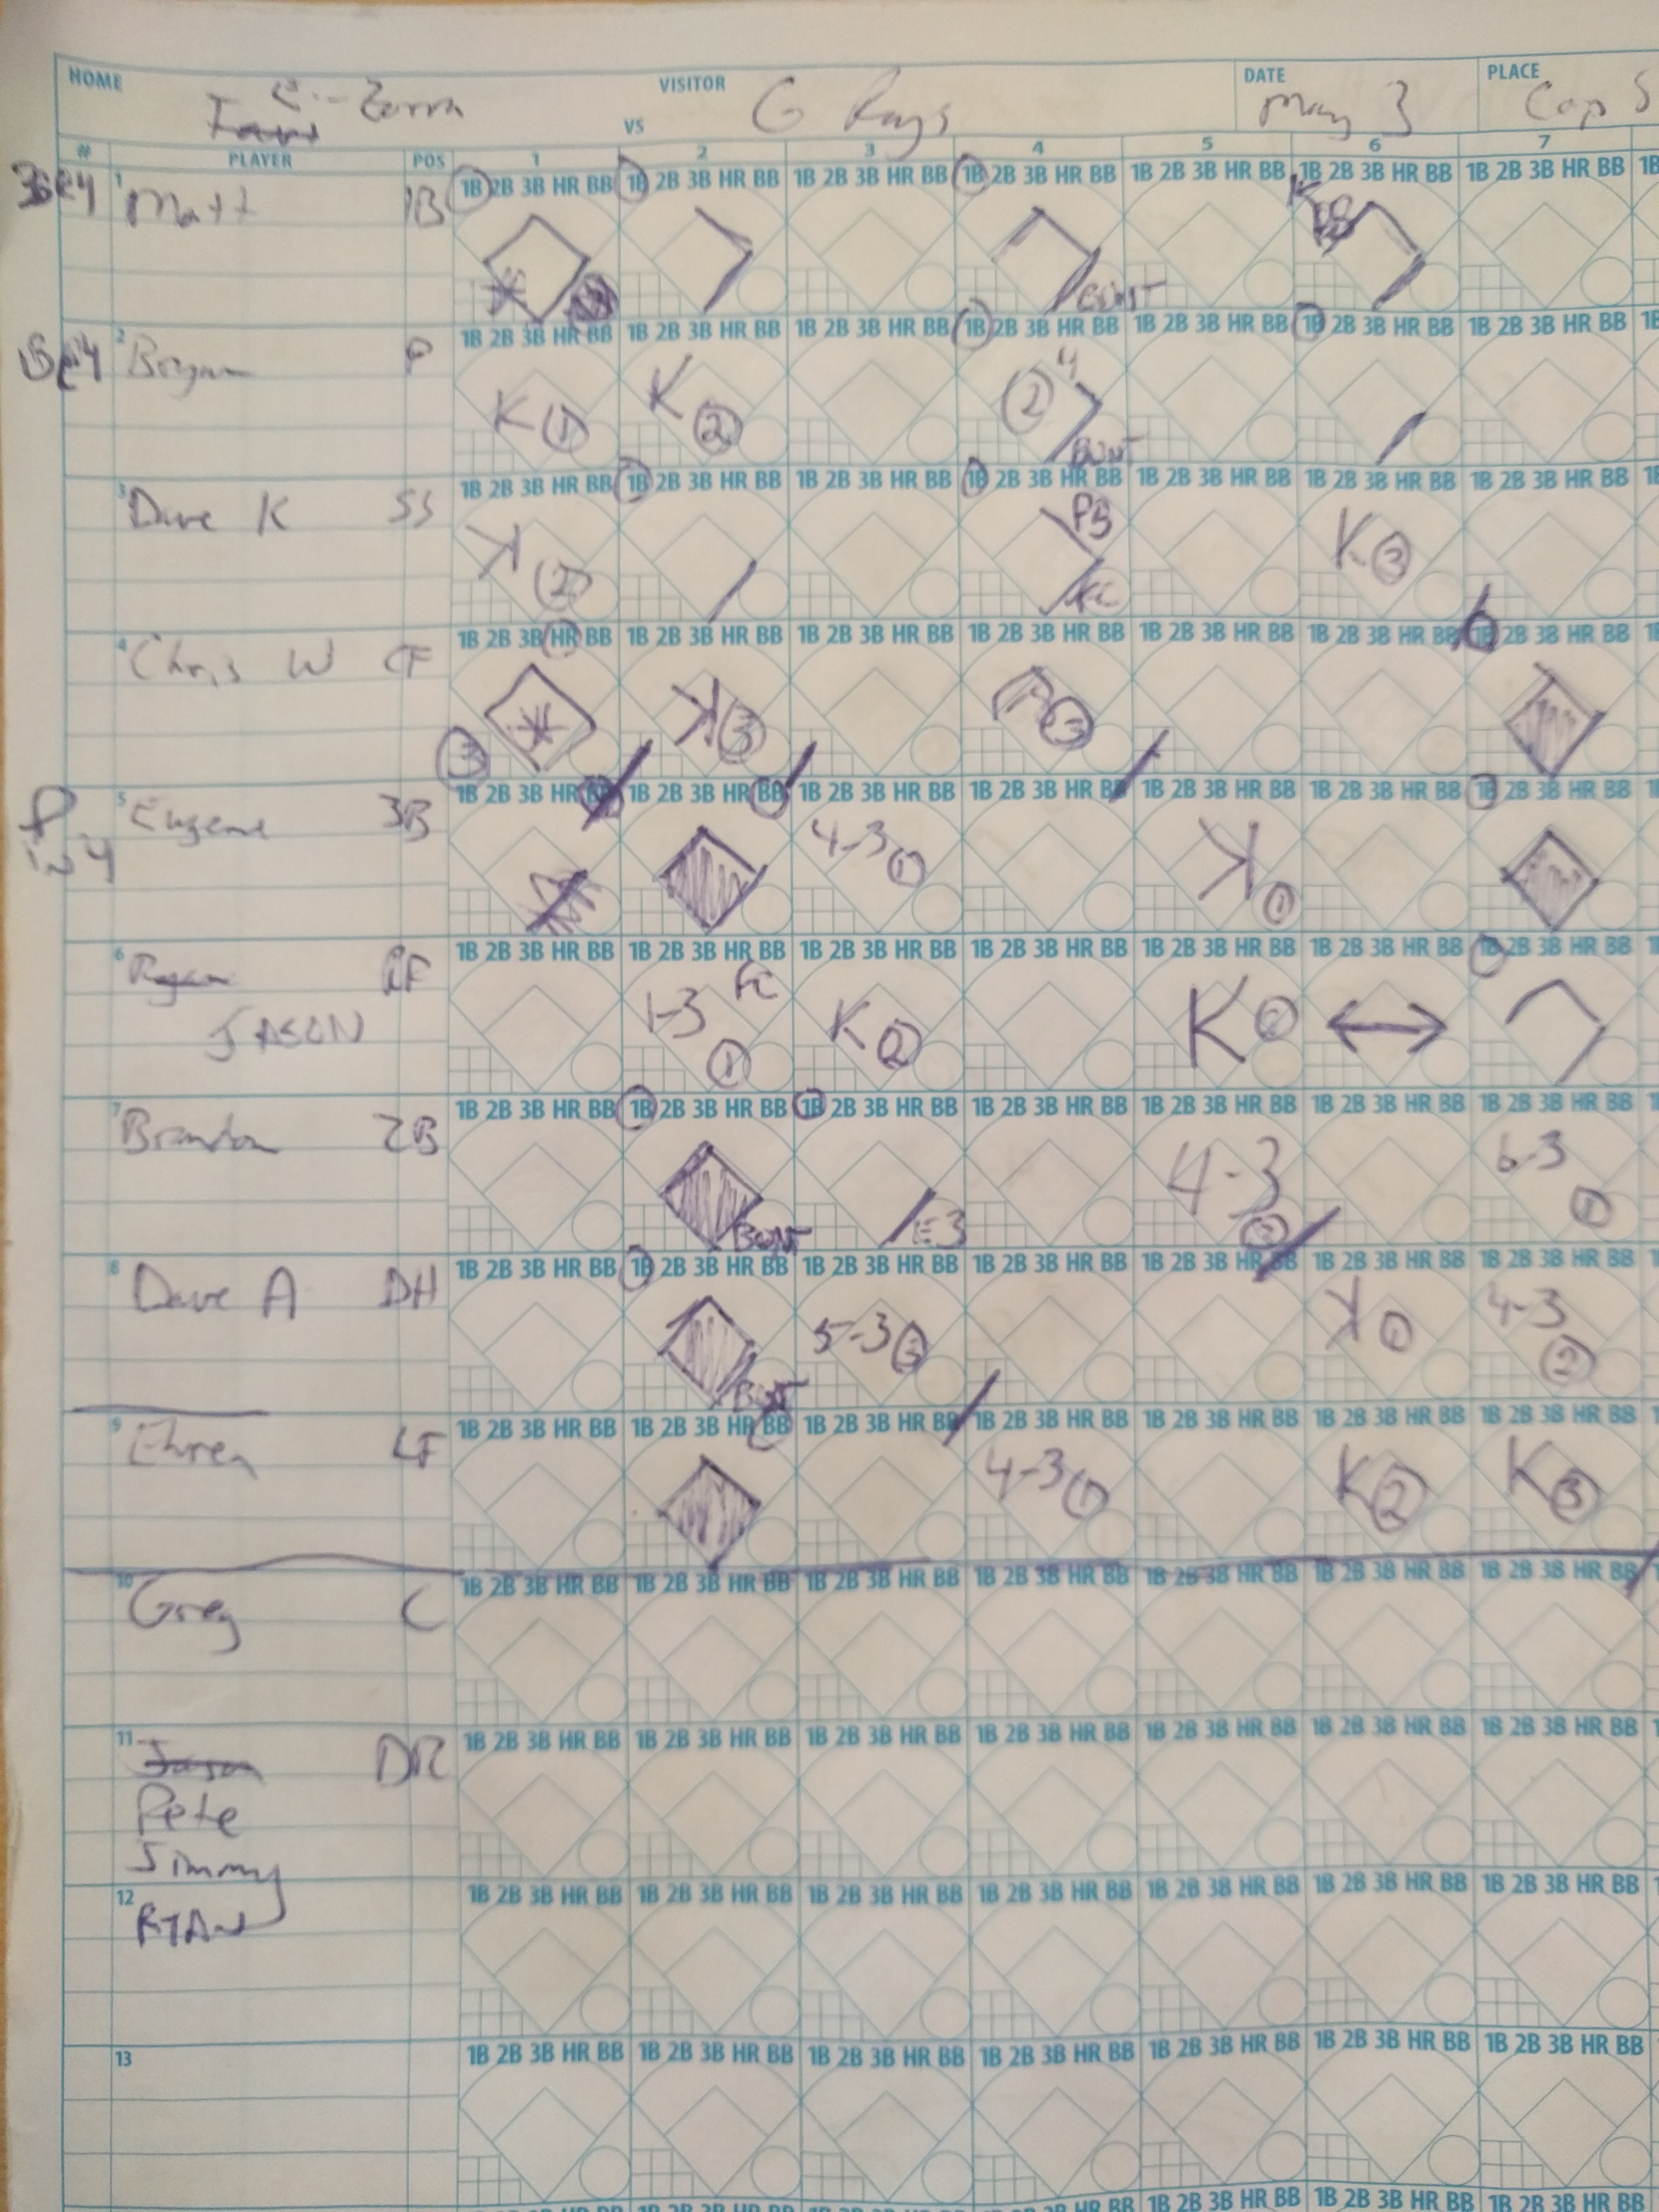 HOME VISITOR G Rays DATE May 3 PLACE Cap S
VS
# PLAYER POS 1 2 3 4 5 6 7
1 Matt 1B 1B 2B 3B HR BB 1B 2B 3B HR BB 1B 2B 3B HR BB 1B 2B 3B HR BB 1B 2B 3B HR BB 1B 2B 3B HR BB 1B 2B 3B HR BB 1B
K
BUNT
2 P 1B 2B 3B HR BB 1B 2B 3B HR BB 1B 2B 3B HR BB 1B 2B 3B HR BB 1B 2B 3B HR BB 1B 2B 3B HR BB 1B 2B 3B HR BB 1B
K 1 K 2 2 4
BUNT
3 Dave K SS 1B 2B 3B HR BB 1B 2B 3B HR BB 1B 2B 3B HR BB 1B 2B 3B HR BB 1B 2B 3B HR BB 1B 2B 3B HR BB 1B 2B 3B HR BB 1B
K 2 PB FC K 3
4 Chris W CF 1B 2B 3B HR BB 1B 2B 3B HR BB 1B 2B 3B HR BB 1B 2B 3B HR BB 1B 2B 3B HR BB 1B 2B 3B HR BB 1B 2B 3B HR BB 1B
3 K 3 3
P in 4 5 Eugene 3B 1B 2B 3B HR BB 1B 2B 3B HR BB 1B 2B 3B HR BB 1B 2B 3B HR BB 1B 2B 3B HR BB 1B 2B 3B HR BB 1B 2B 3B HR BB 1B
4-3 1 K 1
6 Ryan RF 1B 2B 3B HR BB 1B 2B 3B HR BB 1B 2B 3B HR BB 1B 2B 3B HR BB 1B 2B 3B HR BB 1B 2B 3B HR BB 1B 2B 3B HR BB 1B
JASON 1-3 FC 1 K 2 K 2
7 Brandon 2B 1B 2B 3B HR BB 1B 2B 3B HR BB 1B 2B 3B HR BB 1B 2B 3B HR BB 1B 2B 3B HR BB 1B 2B 3B HR BB 1B 2B 3B HR BB 1B
BUNT E3 4-3 3 6-3 1
8 Dave A DH 1B 2B 3B HR BB 1B 2B 3B HR BB 1B 2B 3B HR BB 1B 2B 3B HR BB 1B 2B 3B HR BB 1B 2B 3B HR BB 1B 2B 3B HR BB 1B
BUNT 5-3 3 K 1 4-3 2
9 Ehren LF 1B 2B 3B HR BB 1B 2B 3B HR BB 1B 2B 3B HR BB 1B 2B 3B HR BB 1B 2B 3B HR BB 1B 2B 3B HR BB 1B 2B 3B HR BB 1B
4-3 1 K 2 K 3
10 Greg C 1B 2B 3B HR BB 1B 2B 3B HR BB 1B 2B 3B HR BB 1B 2B 3B HR BB 1B 2B 3B HR BB 1B 2B 3B HR BB 1B 2B 3B HR BB
11 Jason DR 1B 2B 3B HR BB 1B 2B 3B HR BB 1B 2B 3B HR BB 1B 2B 3B HR BB 1B 2B 3B HR BB 1B 2B 3B HR BB 1B 2B 3B HR BB 1B
Pete
Jimmy
12 RYAN 1B 2B 3B HR BB 1B 2B 3B HR BB 1B 2B 3B HR BB 1B 2B 3B HR BB 1B 2B 3B HR BB 1B 2B 3B HR BB 1B 2B 3B HR BB
13 1B 2B 3B HR BB 1B 2B 3B HR BB 1B 2B 3B HR BB 1B 2B 3B HR BB 1B 2B 3B HR BB 1B 2B 3B HR BB 1B 2B 3B HR BB
1B 2B 3B HR BB 1B 2B 3B HR BB